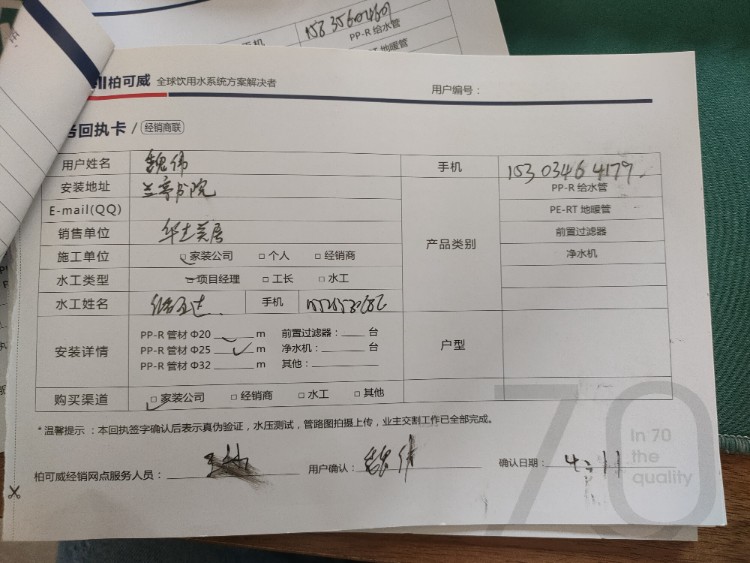 15835604601
PP-R 给水管
PE-RT 地暖管
柏可威 全球饮用水系统方案解决者
用户编号：
回执卡 / 经销商联
用户姓名 魏伟 手机 15303464179
安装地址 兰亭书院 PP-R 给水管
E-mail(QQ) PE-RT 地暖管
销售单位 华士美居 产品类别 前置过滤器
施工单位 □ 家装公司 □ 个人 □ 经销商 净水机
水工类型 □ 项目经理 □ 工长 □ 水工
水工姓名 手机
安装详情 户型
PP-R 管材 Φ20 ✓ m 前置过滤器：____ 台
PP-R 管材 Φ25 ✓ m 净水机：____ 台
PP-R 管材 Φ32 ____ m 其他：____
购买渠道 □ 家装公司 □ 经销商 □ 水工 □ 其他
*温馨提示：本回执签字确认后表示真伪验证，水压测试，管路图拍摄上传，业主交割工作已全部完成。
柏可威经销网点服务人员： 用户确认：魏伟 确认日期：
70
In 70
the
quality